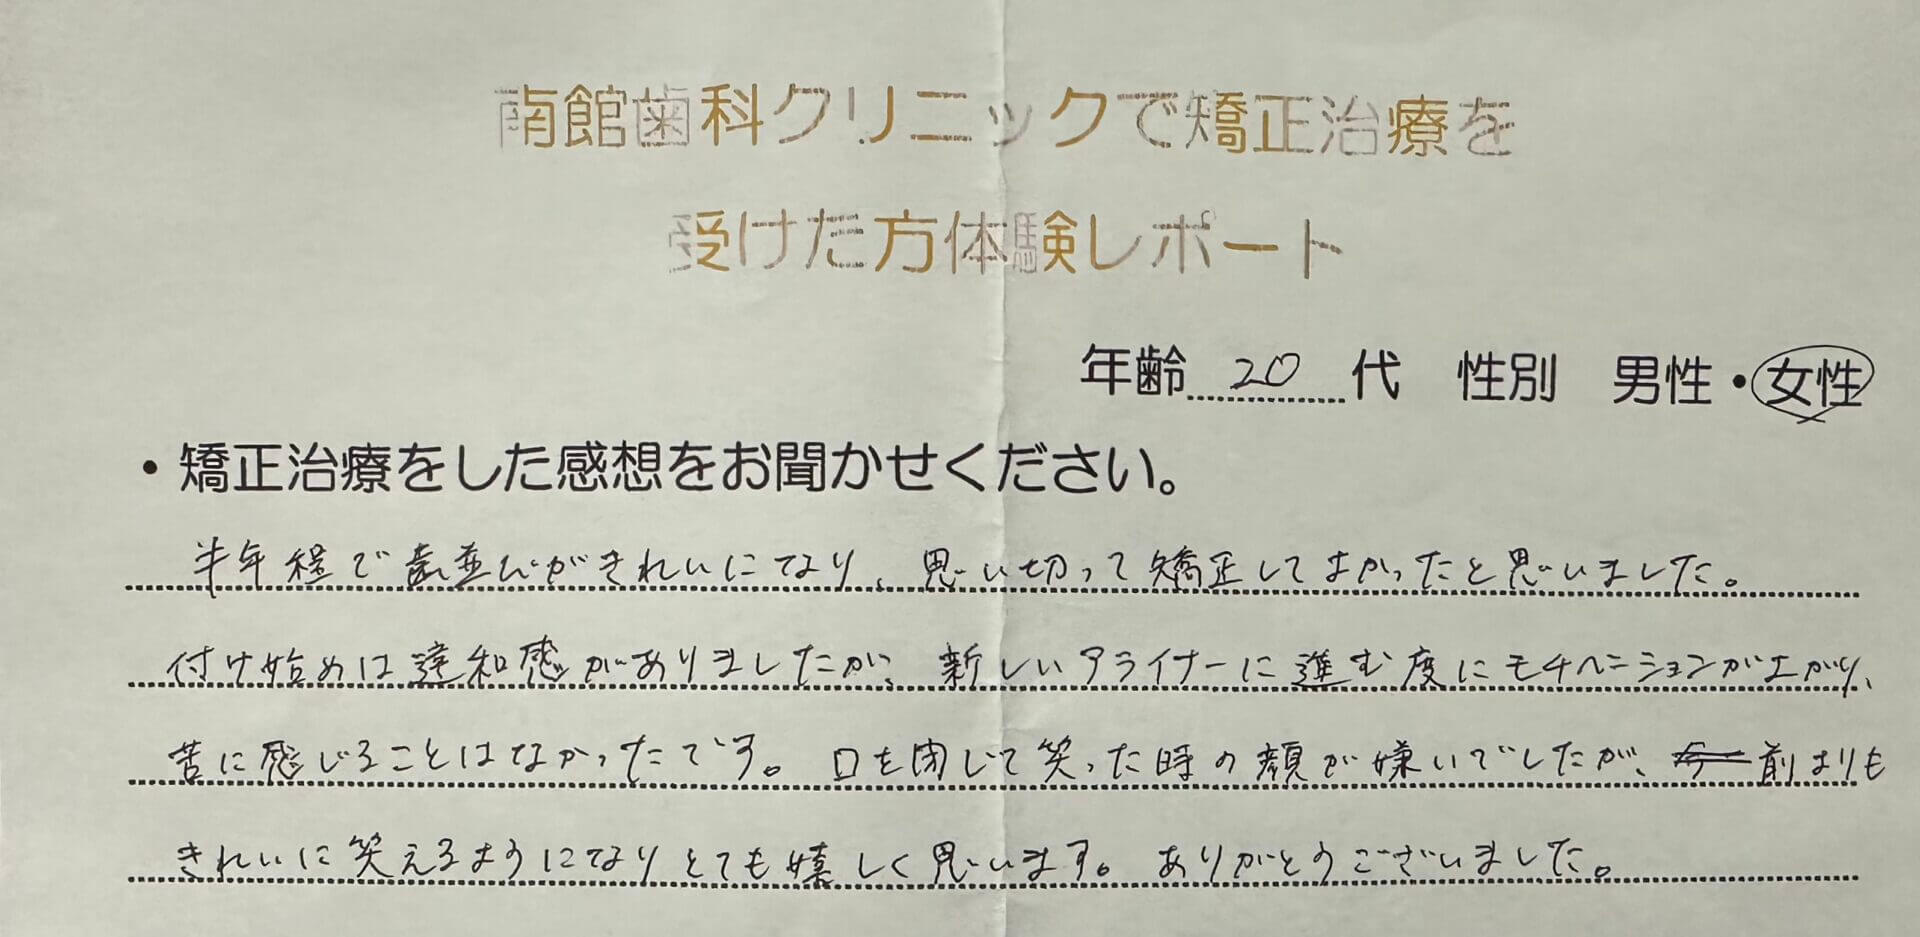 南館歯科クリニックで矯正治療を
受けた方体験レポート
年齢 20 代 性別 男性・女性
・矯正治療をした感想をお聞かせください。
半年程で歯並びがきれいになり、思い切って矯正してよかったと思いました。
付け始めは違和感がありましたが、新しいアライナーに進む度にモチベーションが上がり、
苦に感じることはなかったです。口を閉じて笑った時の顔が嫌いでしたが、前よりも
きれいに笑えるようになりとても嬉しく思います。ありがとうございました。